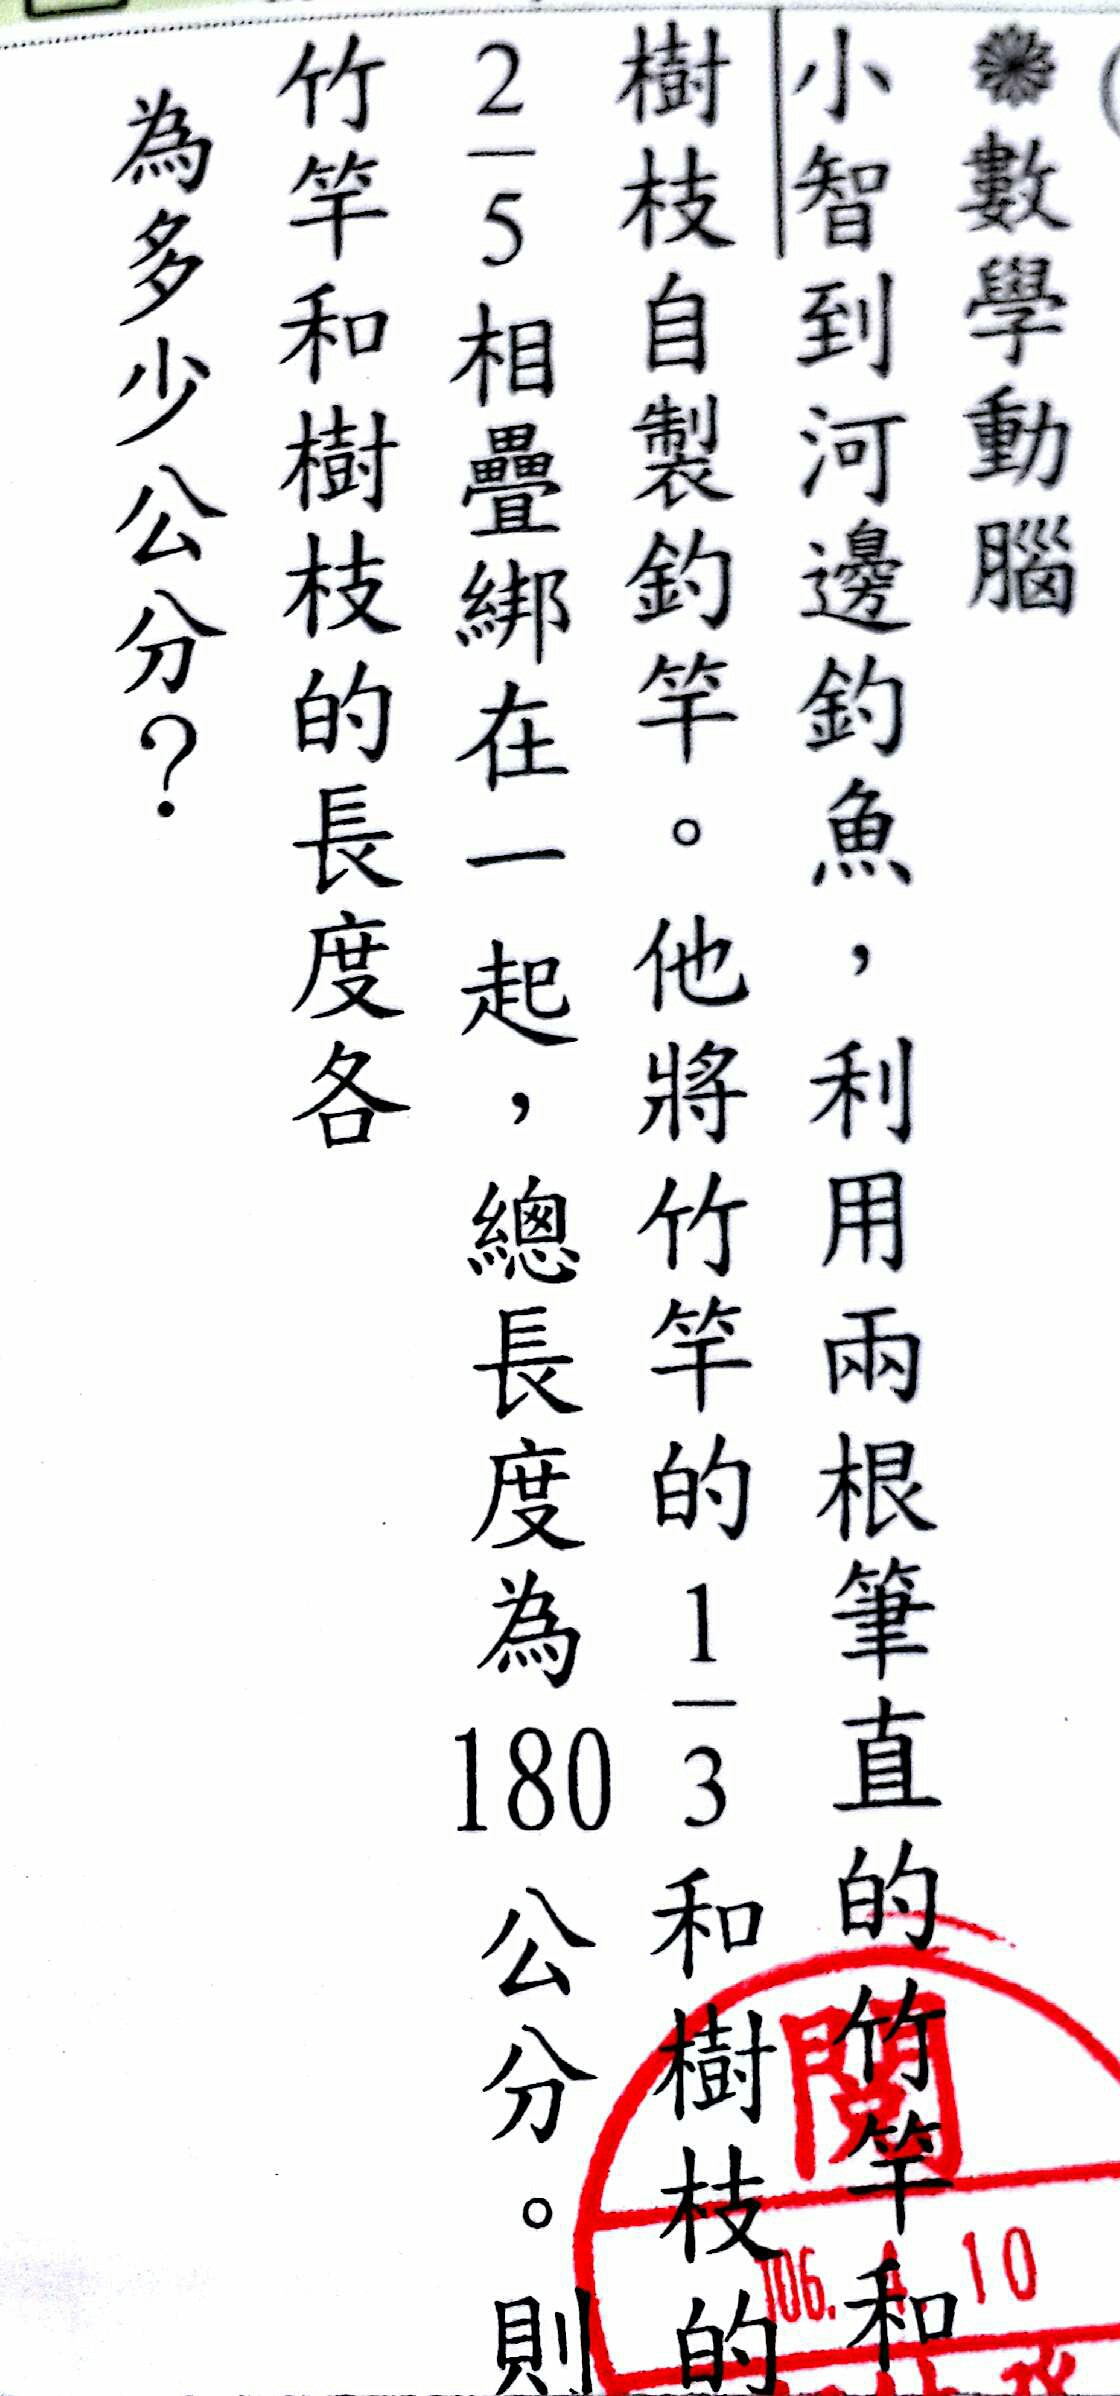 數學動腦
小智到河邊釣魚，利用兩根筆直的竹竿和
樹枝自製釣竿。他將竹竿的1/3和樹枝的
2/5相疊綁在一起，總長度為180公分。則
竹竿和樹枝的長度各
為多少公分？
閱
106. 4. 10